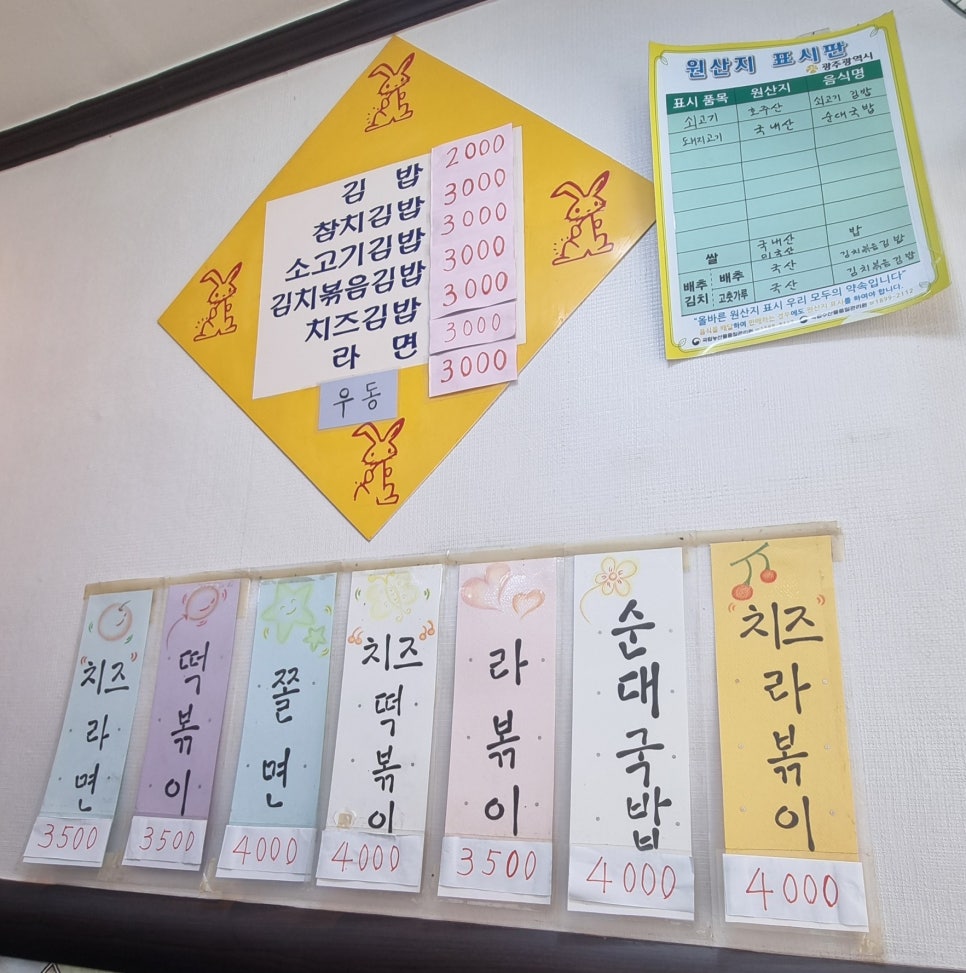 김 밥 2000
참치김밥 3000
소고기김밥 3000
김치볶음김밥 3000
치즈김밥 3000
라 면 3000
우동 3000
원산지 표시판
광주광역시
표시 품목 원산지 음식명
쇠고기 호주산 쇠고기 김밥
돼지고기 국내산 순대국밥
쌀 국내산 미국산 밥
배추김치 배추 국산 김치볶음김밥
고춧가루 국산 김치볶음김밥
"올바른 원산지 표시 우리 모두의 약속입니다"
치즈
라
면
3500
떡
볶
이
3500
쫄
면
4000
치즈
떡
볶
이
4000
라
볶
이
3500
순
대
국
밥
4000
치즈
라
볶
이
4000